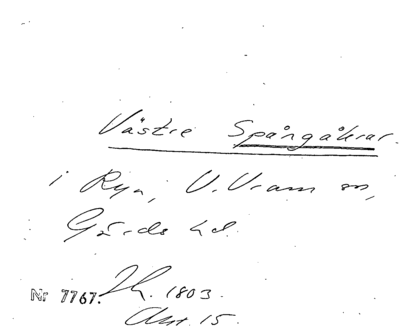 Västre Spångåkrar.
i Rya, V. Vram sn,
Gärds hd.
Nr 7767. Jh. 1803.
Akt. 15.